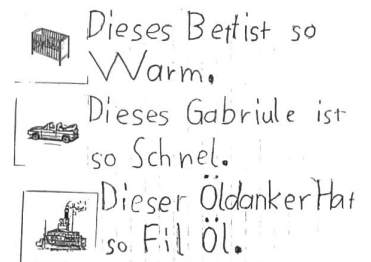 Dieses Bettist so
Warm.
Dieses Gabriule ist
so Schnel.
Dieser Öldanker Hat
so Fil Öl.